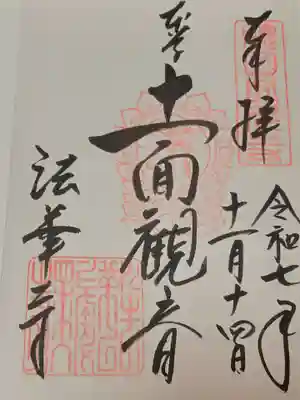 奉拝
令和七年
十一月十四日
十一面觀音
法華寺